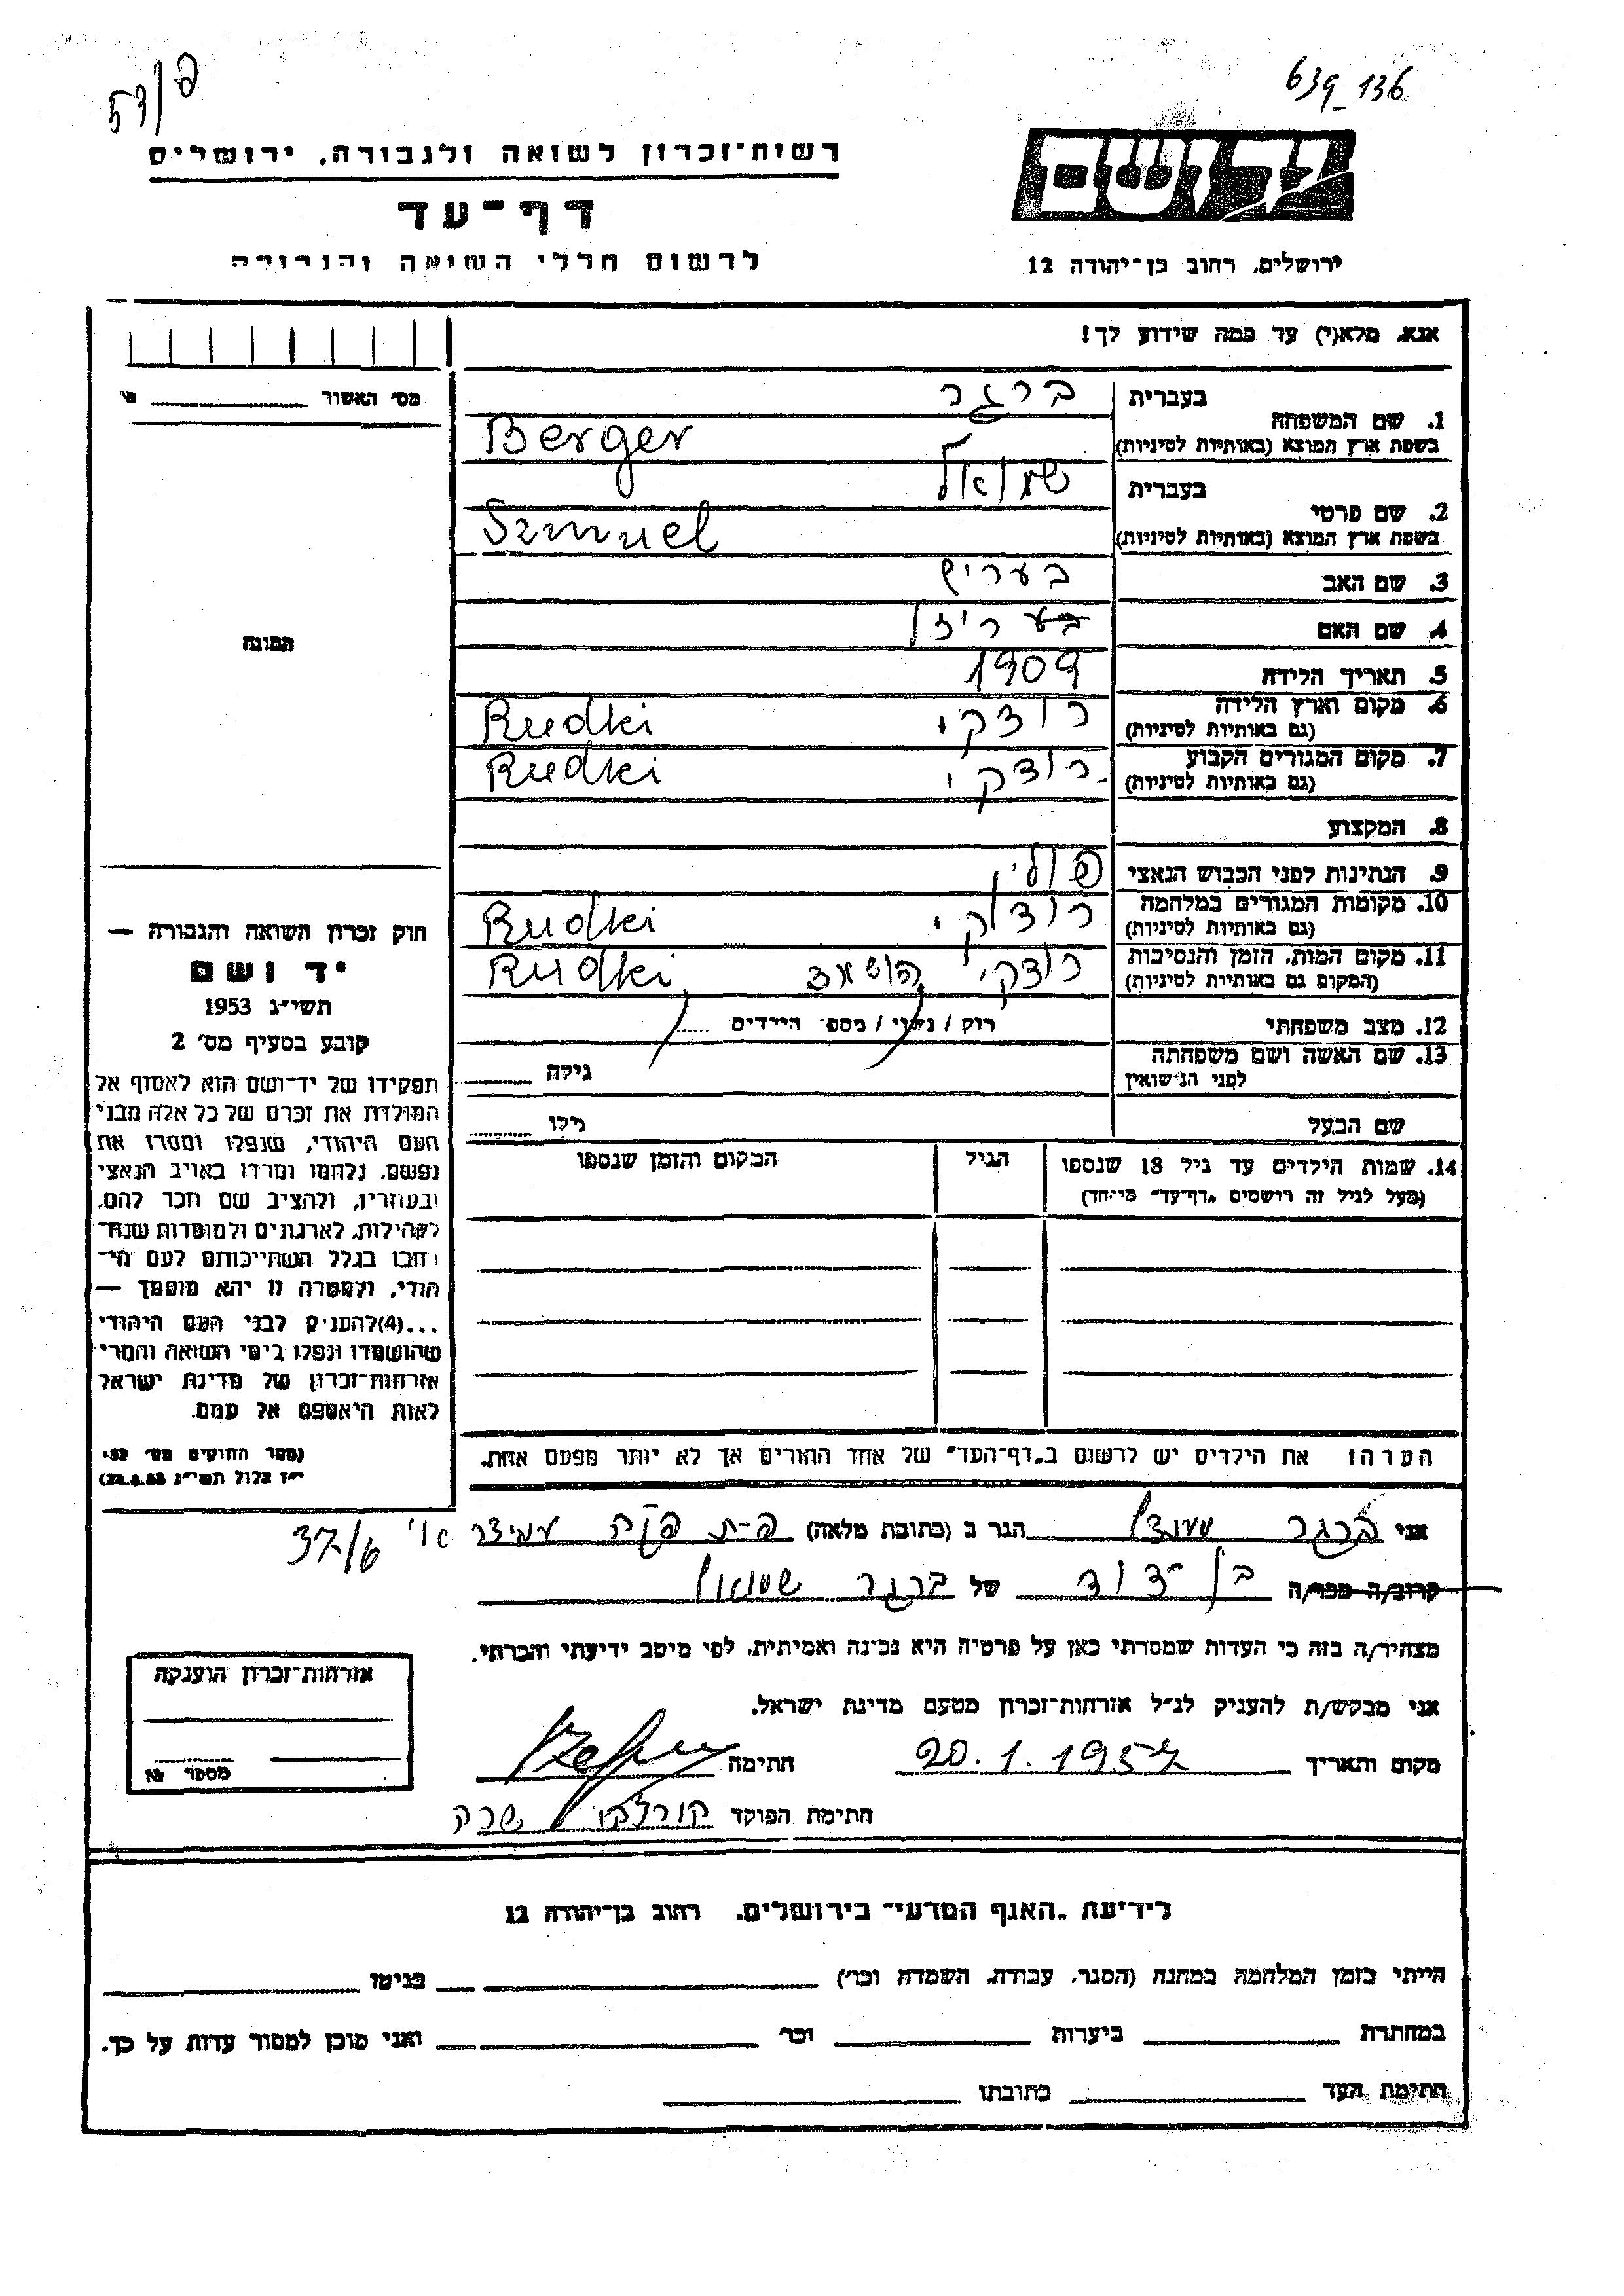 639_136
רשות־זכרון לשואה ולגבורה, ירושלים
דף־עד
לרשום חללי השואה והגבורה
יד ושם
ירושלים, רחוב בן־יהודה 12
אנא, מלא(י) עד כמה שידוע לך!
מס׳ האשור
תמונה
בעברית ברגר
1. שם המשפחה
בשפת ארץ המוצא (באותיות לטיניות) Berger
בעברית שמואל
2. שם פרטי
בשפת ארץ המוצא (באותיות לטיניות) Szmuel
3. שם האב בעריש
4. שם האם ריזל
5. תאריך הלידה 1909
6. מקום וארץ הלידה רודקי Rudki
(גם באותיות לטיניות)
7. מקום המגורים הקבוע רודקי Rudki
(גם באותיות לטיניות)
8. המקצוע
9. הנתינות לפני הכבוש הנאצי פולין
10. מקומות המגורים במלחמה רודקי Rudki
(גם באותיות לטיניות)
11. מקום המות, הזמן והנסיבות רודקי, הושמד Rudki
(המקום גם באותיות לטיניות)
12. מצב משפחתי רוק / נשוי / מספר הילדים
13. שם האשה ושם משפחתה
לפני הנישואין גילה
שם הבעל גילו
14. שמות הילדים עד גיל 18 שנספו הגיל המקום והזמן שנספו
(מעל לגיל זה רושמים "דף־עד" מיוחד)
חוק זכרון השואה והגבורה —
יד ושם
תשי״ג 1953
קובע בסעיף מס׳ 2
תפקידו של יד־ושם הוא לאסוף אל
המולדת את זכרם של כל אלה מבני
העם היהודי, שנפלו ומסרו את
נפשם, נלחמו ומרדו באויב הנאצי
ובעוזריו, ולהציב שם וזכר להם,
לקהילות, לארגונים ולמוסדות שנח־
רבו בגלל השתייכותם לעם הי־
הודי, ולמטרה זו יהא מוסמך —
...(4)להעניק לבני העם היהודי
שהושמדו ונפלו בימי השואה והמרי
אזרחות־זכרון של מדינת ישראל
לאות היאספם אל עמם.
(ספר החוקים מס׳ 132,
י״ז אלול תשי״ג 28.8.53)
הערה! את הילדים יש לרשום ב"דף־העד" של אחד ההורים אך לא יותר מפעם אחת.
אני ברגר הגר ב (כתובת מלאה) פ-ת עמידר 37/6
קרוב/ה מכר/ה בן דוד של ברגר שמואל
מצהיר/ה בזה כי העדות שמסרתי כאן על פרטיה היא נכונה ואמיתית, לפי מיטב ידיעתי והכרתי.
אני מבקש/ת להעניק לנ״ל אזרחות־זכרון מטעם מדינת ישראל.
מקום ותאריך 20.1.1957 חתימה
חתימת הפוקד שרה
אזרחות־זכרון הוענקה
מספר
לידיעת "האגף המדעי" בירושלים, רחוב בן־יהודה 12
הייתי בזמן המלחמה במחנה (הסגר, עבודה, השמדה וכו׳) בגיטו
במחתרת ביערות וכו׳ ואני מוכן למסור עדות על כך.
חתימת העד כתובתו